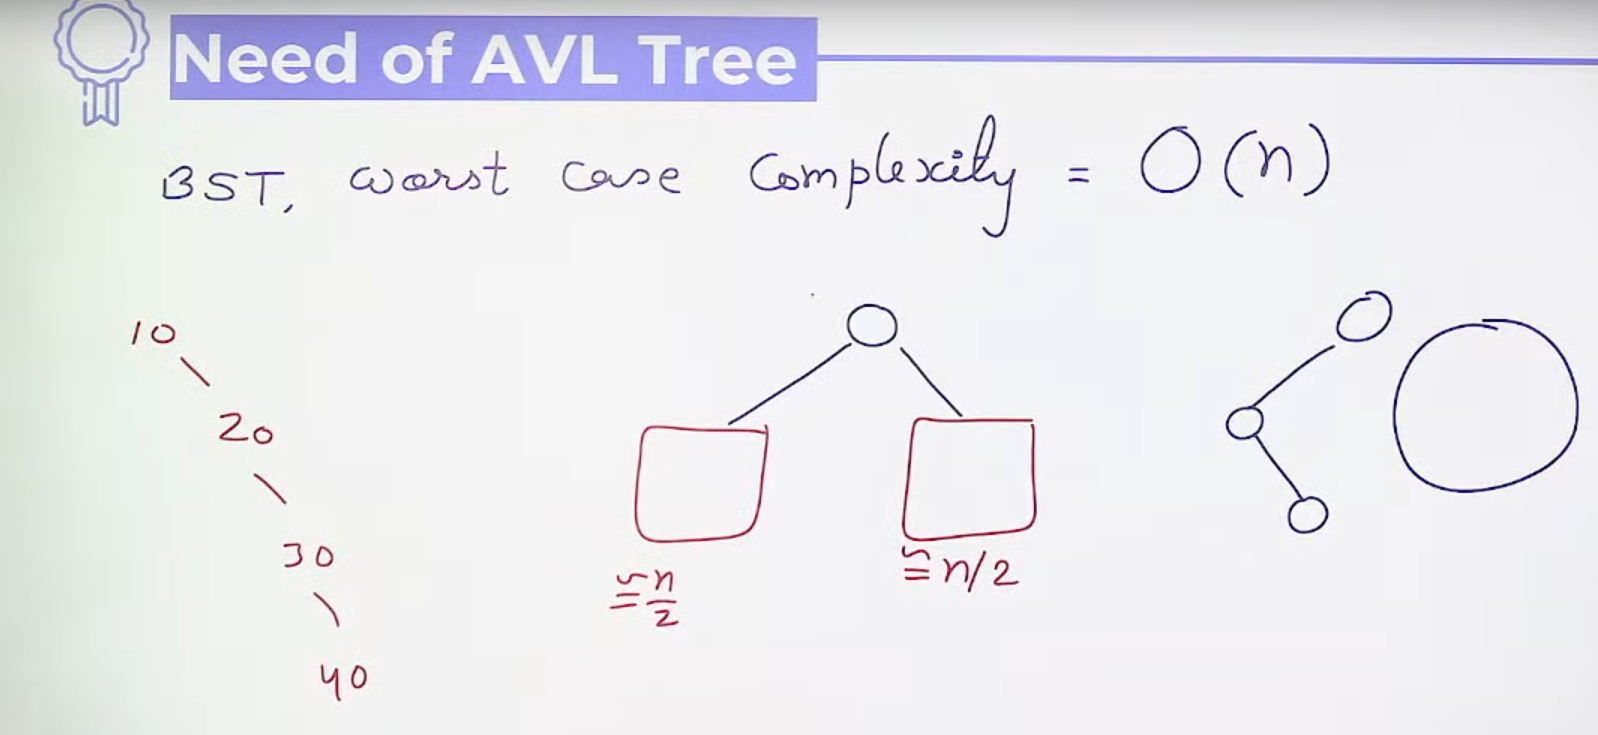 Need of AVL Tree
BST, worst case Complexity = O(n)
10
20
30
40
≅ n/2
≅ n/2